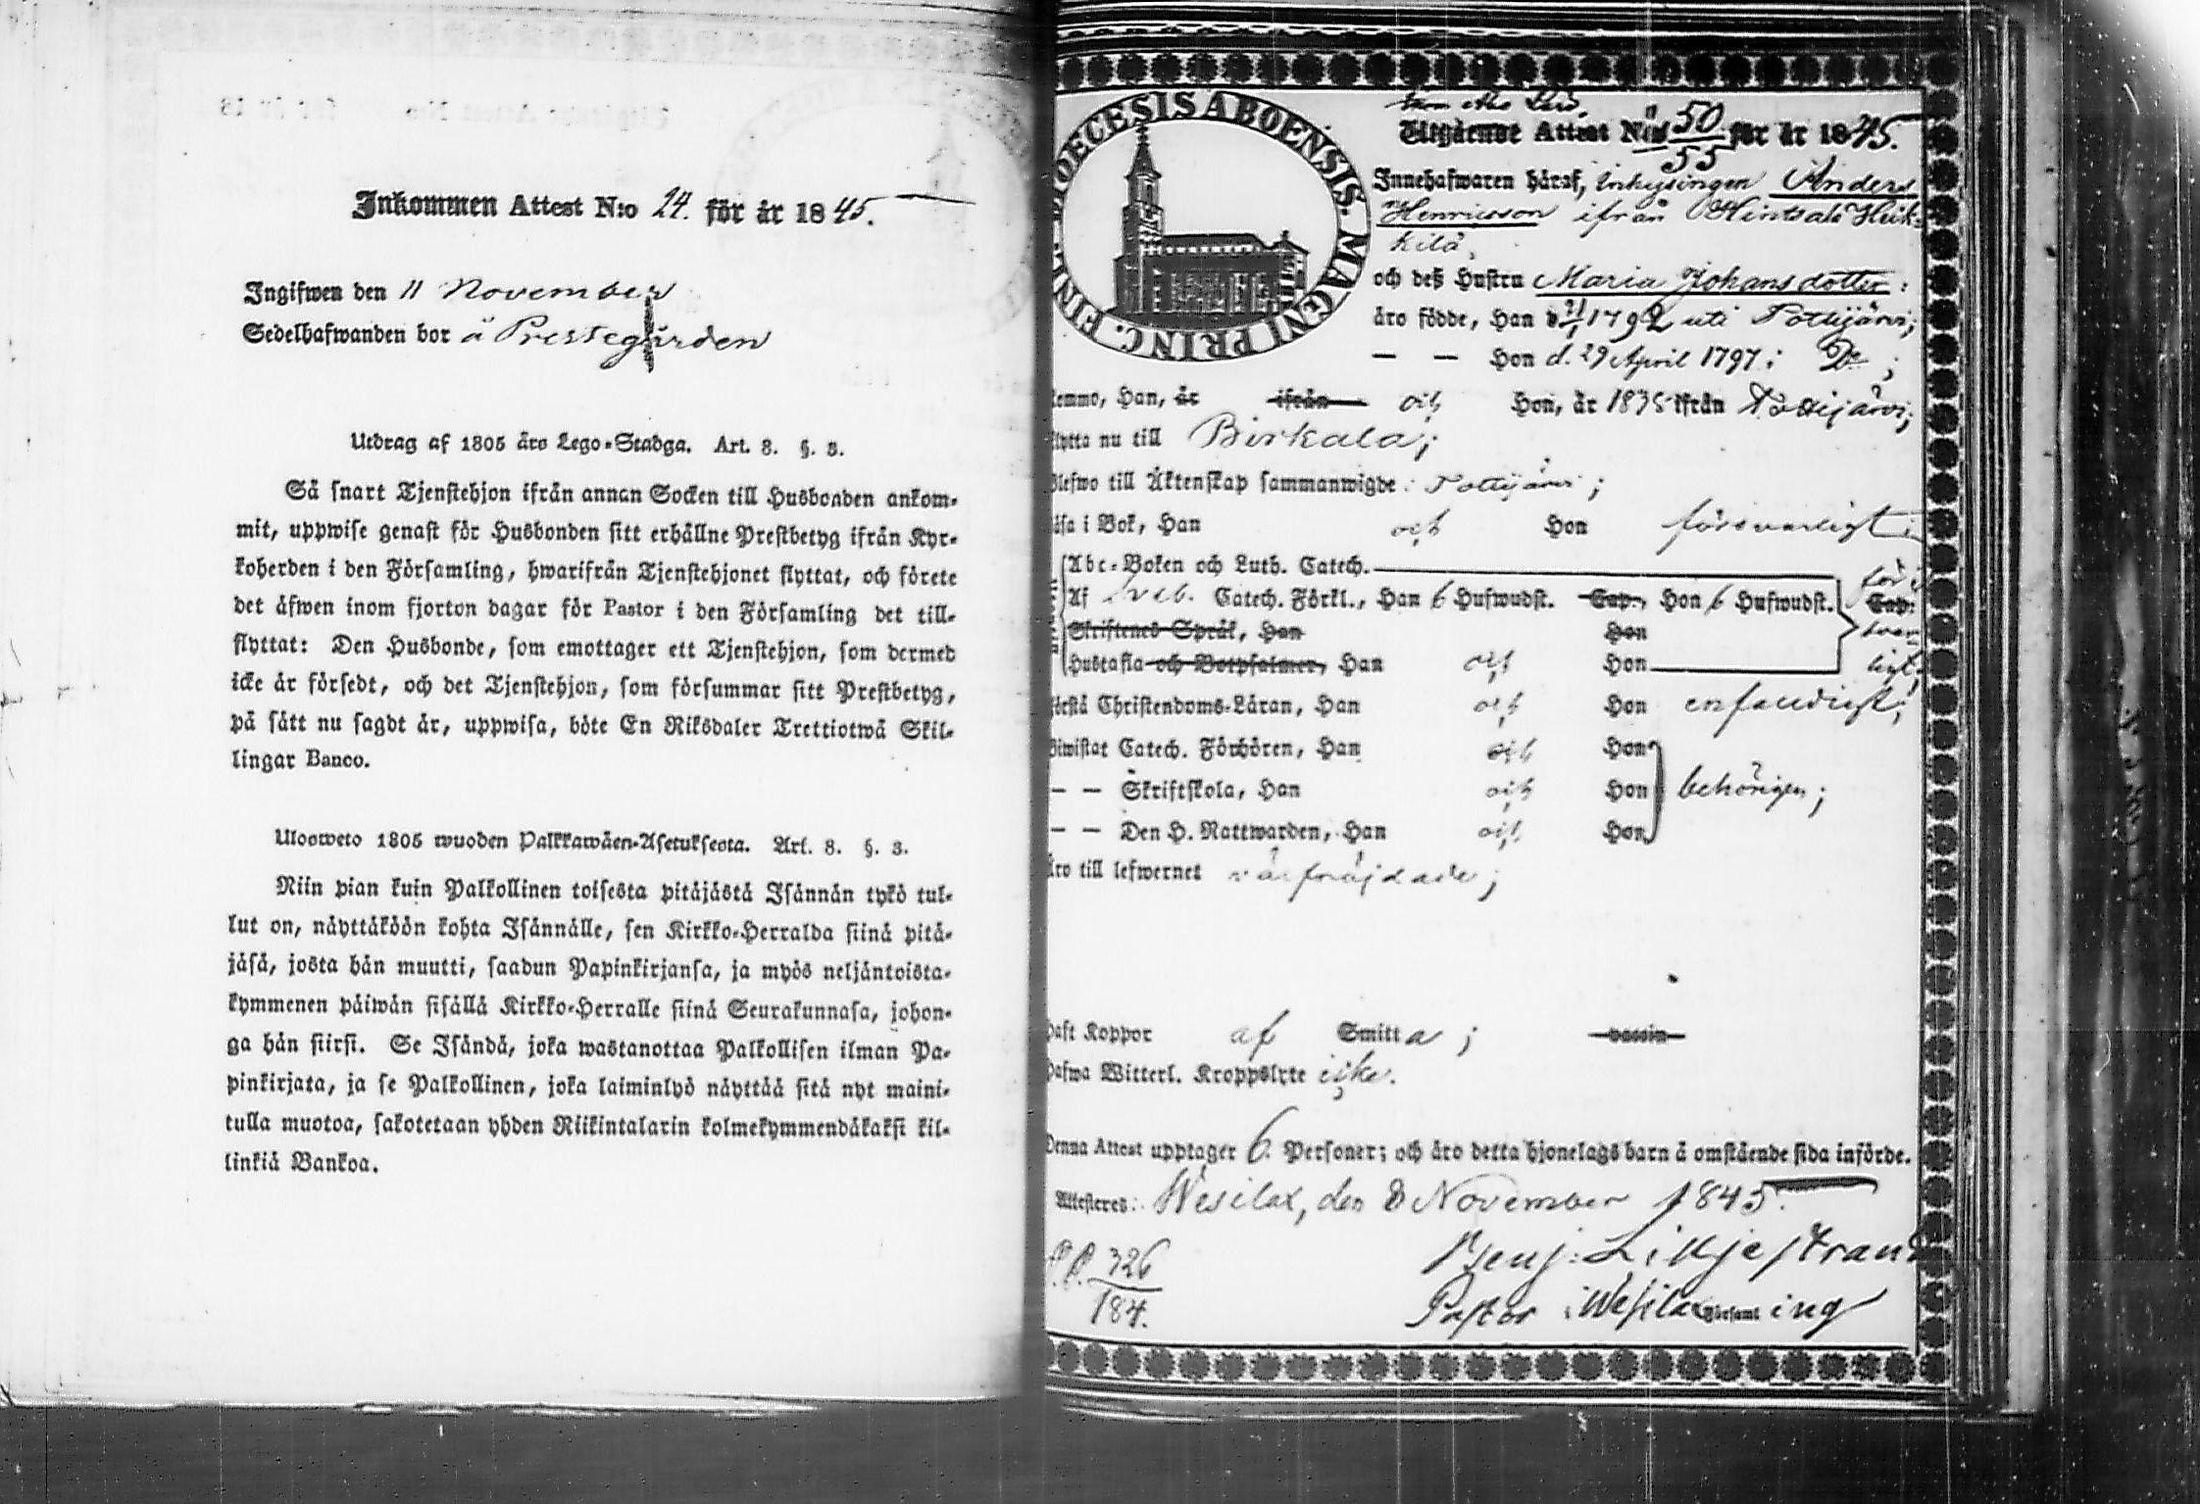 Inkommen Attest N:o 24. för år 1845.
Ingifwen den 11 November
Sedelhafwanden bor å Prestegården
Utdrag af 1805 års Lego-Stadga. Art. 8. §. 3.
Så snart Tjenstehjon ifrån annan Socken till Husbonden ankom-
mit, uppwise genast för Husbonden sitt erhållne Prestbetyg ifrån Kyr-
koherden i den Församling, hwarifrån Tjenstehjonet flyttat, och förete
det äfwen inom fjorton dagar för Pastor i den Församling det till-
flyttat: Den Husbonde, som emottager ett Tjenstehjon, som dermed
icke är försedt, och det Tjenstehjon, som försummar sitt Prestbetyg,
på sätt nu sagdt är, uppwisa, böte En Riksdaler Trettiotwå Skil-
lingar Banco.
Ulosweto 1805 wuoden Palkkawäen-Asetuksesta. Art. 8. §. 3.
Niin pian kuin Palkollinen toisesta pitäjästä Isännän tykö tul-
lut on, näyttäköön kohta Isännälle, sen Kirkko-Herralda siinä pitä-
jäsä, josta hän muutti, saadun Papinkirjansa, ja myös neljäntoista-
kymmenen päiwän sisällä Kirkko-Herralle siinä Seurakunnasa, johon-
ga hän siirsi. Se Isändä, joka wastanottaa Palkollisen ilman Pa-
pinkirjata, ja se Palkollinen, joka laiminlyö näyttää sitä nyt maini-
tulla muotoa, sakotetaan yhden Riikintalarin kolmekymmendäkaksi kil-
linkiä Bankoa.
DIOECESIS ABOENSIS. MAGNI PRINC. FINL.
Utgående Attest N:o 50/55 för år 1845.
Innehafwaren häraf, Inhysingen Anders
Henricsson ifrån Hintsala Heik-
kilä,
och deß Hustru Maria Johansdotter:
äro födde, Han d 21/1 1792 uti Tottijärvi;
— — Hon d. 29 April 1797 i Do;
kommo, Han, år ifrån och Hon, år 1835 ifrån Tottijärvi;
flytta nu till Birkala;
Blefwo till Äktenskap sammanwigde i Tottijärvi;
läsa i Bok, Han och Hon försvarligt;
Abc-Boken och Luth. Catech.
Af Sveb. Catech. Förkl., Han 6 Hufwudst. Cap., Hon 6 Hufwudst. Cap. försvarligt;
Skriftenes Språk, Han Hon
Hustafla och Botpsalmer, Han och Hon
förstå Christendoms-Läran, Han och Hon enfaldigt;
Biwistat Catech. Förhören, Han och Hon
— — Skriftskola, Han och Hon behörigen;
— — Den H. Nattwarden, Han och Hon
Äro till lefwernet välfräjdade;
Haft Koppor af Smitta; vaccin
Hafwa Witterl. Kroppslyte icke.
Denna Attest upptager 6 Personer; och äro detta hjonelags barn å omstående sida införde.
Attesteras: Wesilax, den 8 November 1845.
P.P. 326/184.
Benj: Liljestrand
Pastor i Wesilax Församling